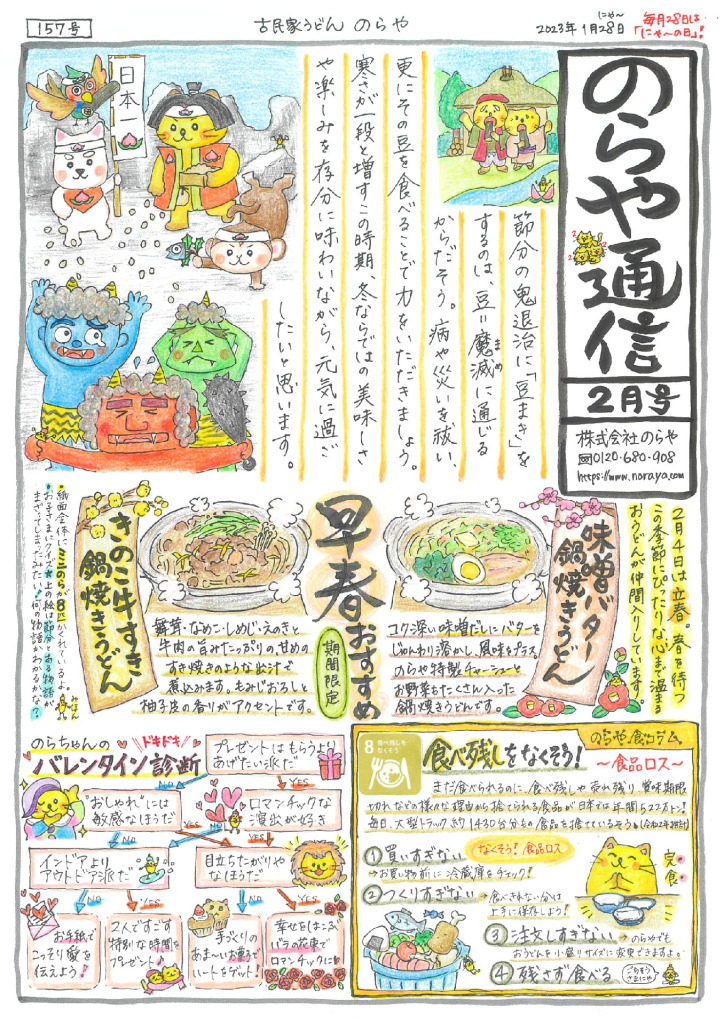 157号
古民家うどん のらや
にゃ〜
2023年 1月28日
毎月28日は
「にゃ〜の日」!
のらや通信
2月号
株式会社のらや
0120-680-908
https://www.noraya.com
日本一
節分の鬼退治に「豆まき」を
するのは、豆=魔滅に通じる
まめ
からだそう。病や災いを祓い、
更にその豆を食べることで力をいただきましょう。
寒さが一段と増すこの時期、冬ならではの美味しさ
や楽しみを存分に味わいながら、元気に過ご
したいと思います。
2月4日は立春。春を待つ
この季節にぴったりな心まで温まる
おうどんが仲間入りしています。
味噌バター
鍋焼きうどん
早春おすすめ
期間限定
コク深い味噌だしにバターを
じゅんわり溶かし、風味をプラス
のらや特製チャーシューと
お野菜もたくさん入った
鍋焼きうどんです。
きのこ牛すき
鍋焼きうどん
舞茸・なめこ・しめじ・えのきと
牛肉の旨みたっぷりの、甘めの
すき焼きのような出汁で
煮込みます。もみじおろしと
柚子皮の香りがアクセントです。
紙面全体にミニのらが8匹かくれているよ。
みほん
お子さまにクイズ☆上の絵は節分とある物語が
まざってしまったみたい!何の物語かわかるかな?
のらちゃんの
ドキドキ
バレンタイン診断
プレゼントはもらうより
あげたい派だ
NO
YES
"おしゃれ"には
敏感なほうだ
ロマンチックな
演出が好き
NO
YES
NO
YES
インドアより
アウトドア派だ
目立ちたがりや
なほうだ
NO
YES
NO
YES
お手紙で
こっそり愛を
伝えよう!
2人ですごす
特別な時間を
プレゼント♪
手づくりの
あま〜いお菓子で
ハートをゲット!
幸せをはこぶ
バラの花束で
ロマンチックに
8 食べ残しを
なくそう
食べ残しをなくそう!
のらや食コラム
〜食品ロス〜
まだ食べられるのに、食べ残しや売れ残り、賞味期限
切れなどの様々な理由から捨てられる食品が日本では年間522万トン!
毎日、大型トラック約1430台分もの食品を捨てているそう。(令和2年推計)
なくそう!食品ロス
①買いすぎない
→お買い物前に冷蔵庫をチェック!
②つくりすぎない
→食べきれない分は
上手に保存しよう!
③注文しすぎない
→のらやでも
おうどんを小盛りサイズに変更できますよ。
④残さず食べる
ごちそう
さまにゃ
完食